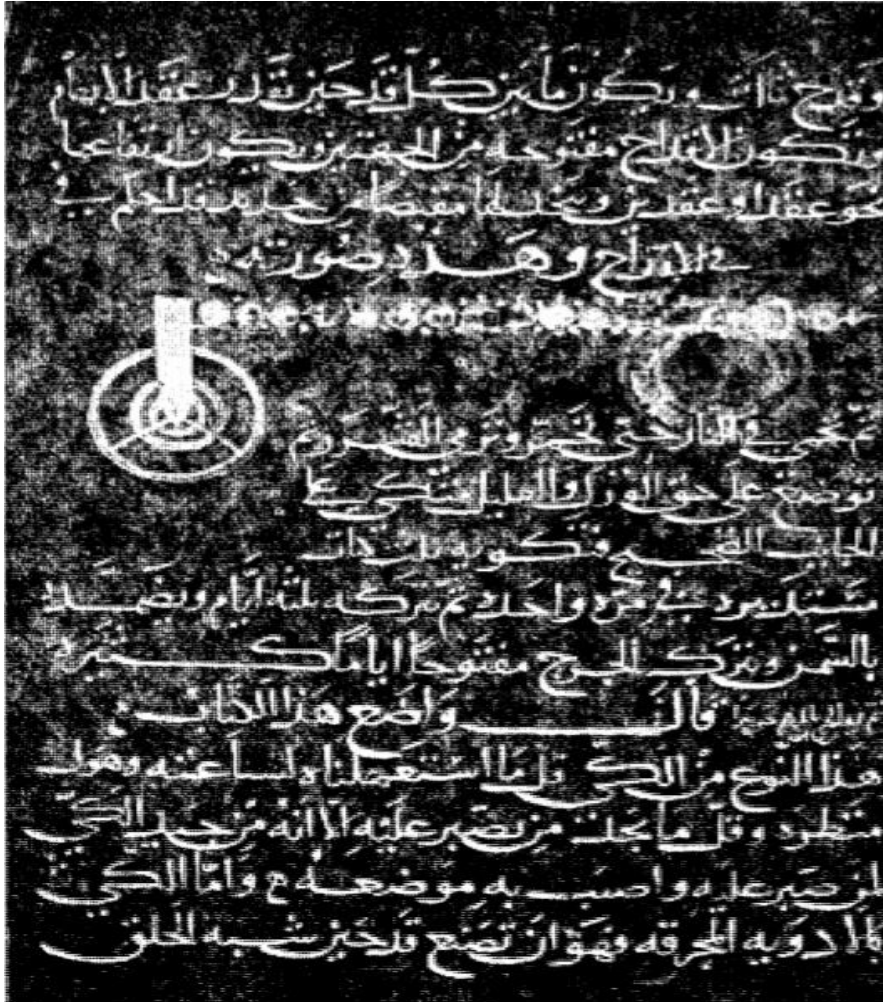 وقدح ثالث ويكون ما بين كل قدحين بقدر عقد الابهام
وتكون الاقداح مفتوحة من الجهتين ويكون ارتفاعها
نحو عقد او عقدين و لها مقبضا من حديد قد احكم في
الاقداح وهذه صورته
ثم تحمى في النار حتى تحمر وترمي الشرر ثم
توضع على حق الورك والعليل متكي على
الجانب الصحيح فتكويه ثلاث كيات
مستديرة في مرة واحدة ثم تتركه ثلثة ايام وتضمده
بالسمن وتترك الجرح مفتوحا اياما كثيرة
قال واضع هذا الكتاب
هذا النوع من الكي قل ما استعملناه لشناعته وهول
منظره وقل ما يجد من يصبر عليه الا انه من جيد الكي
لمن صبر عليه واصيب به موضعه واما الكي
بالادوية المحرقة فهو ان تصنع قدحين شبه الحلق